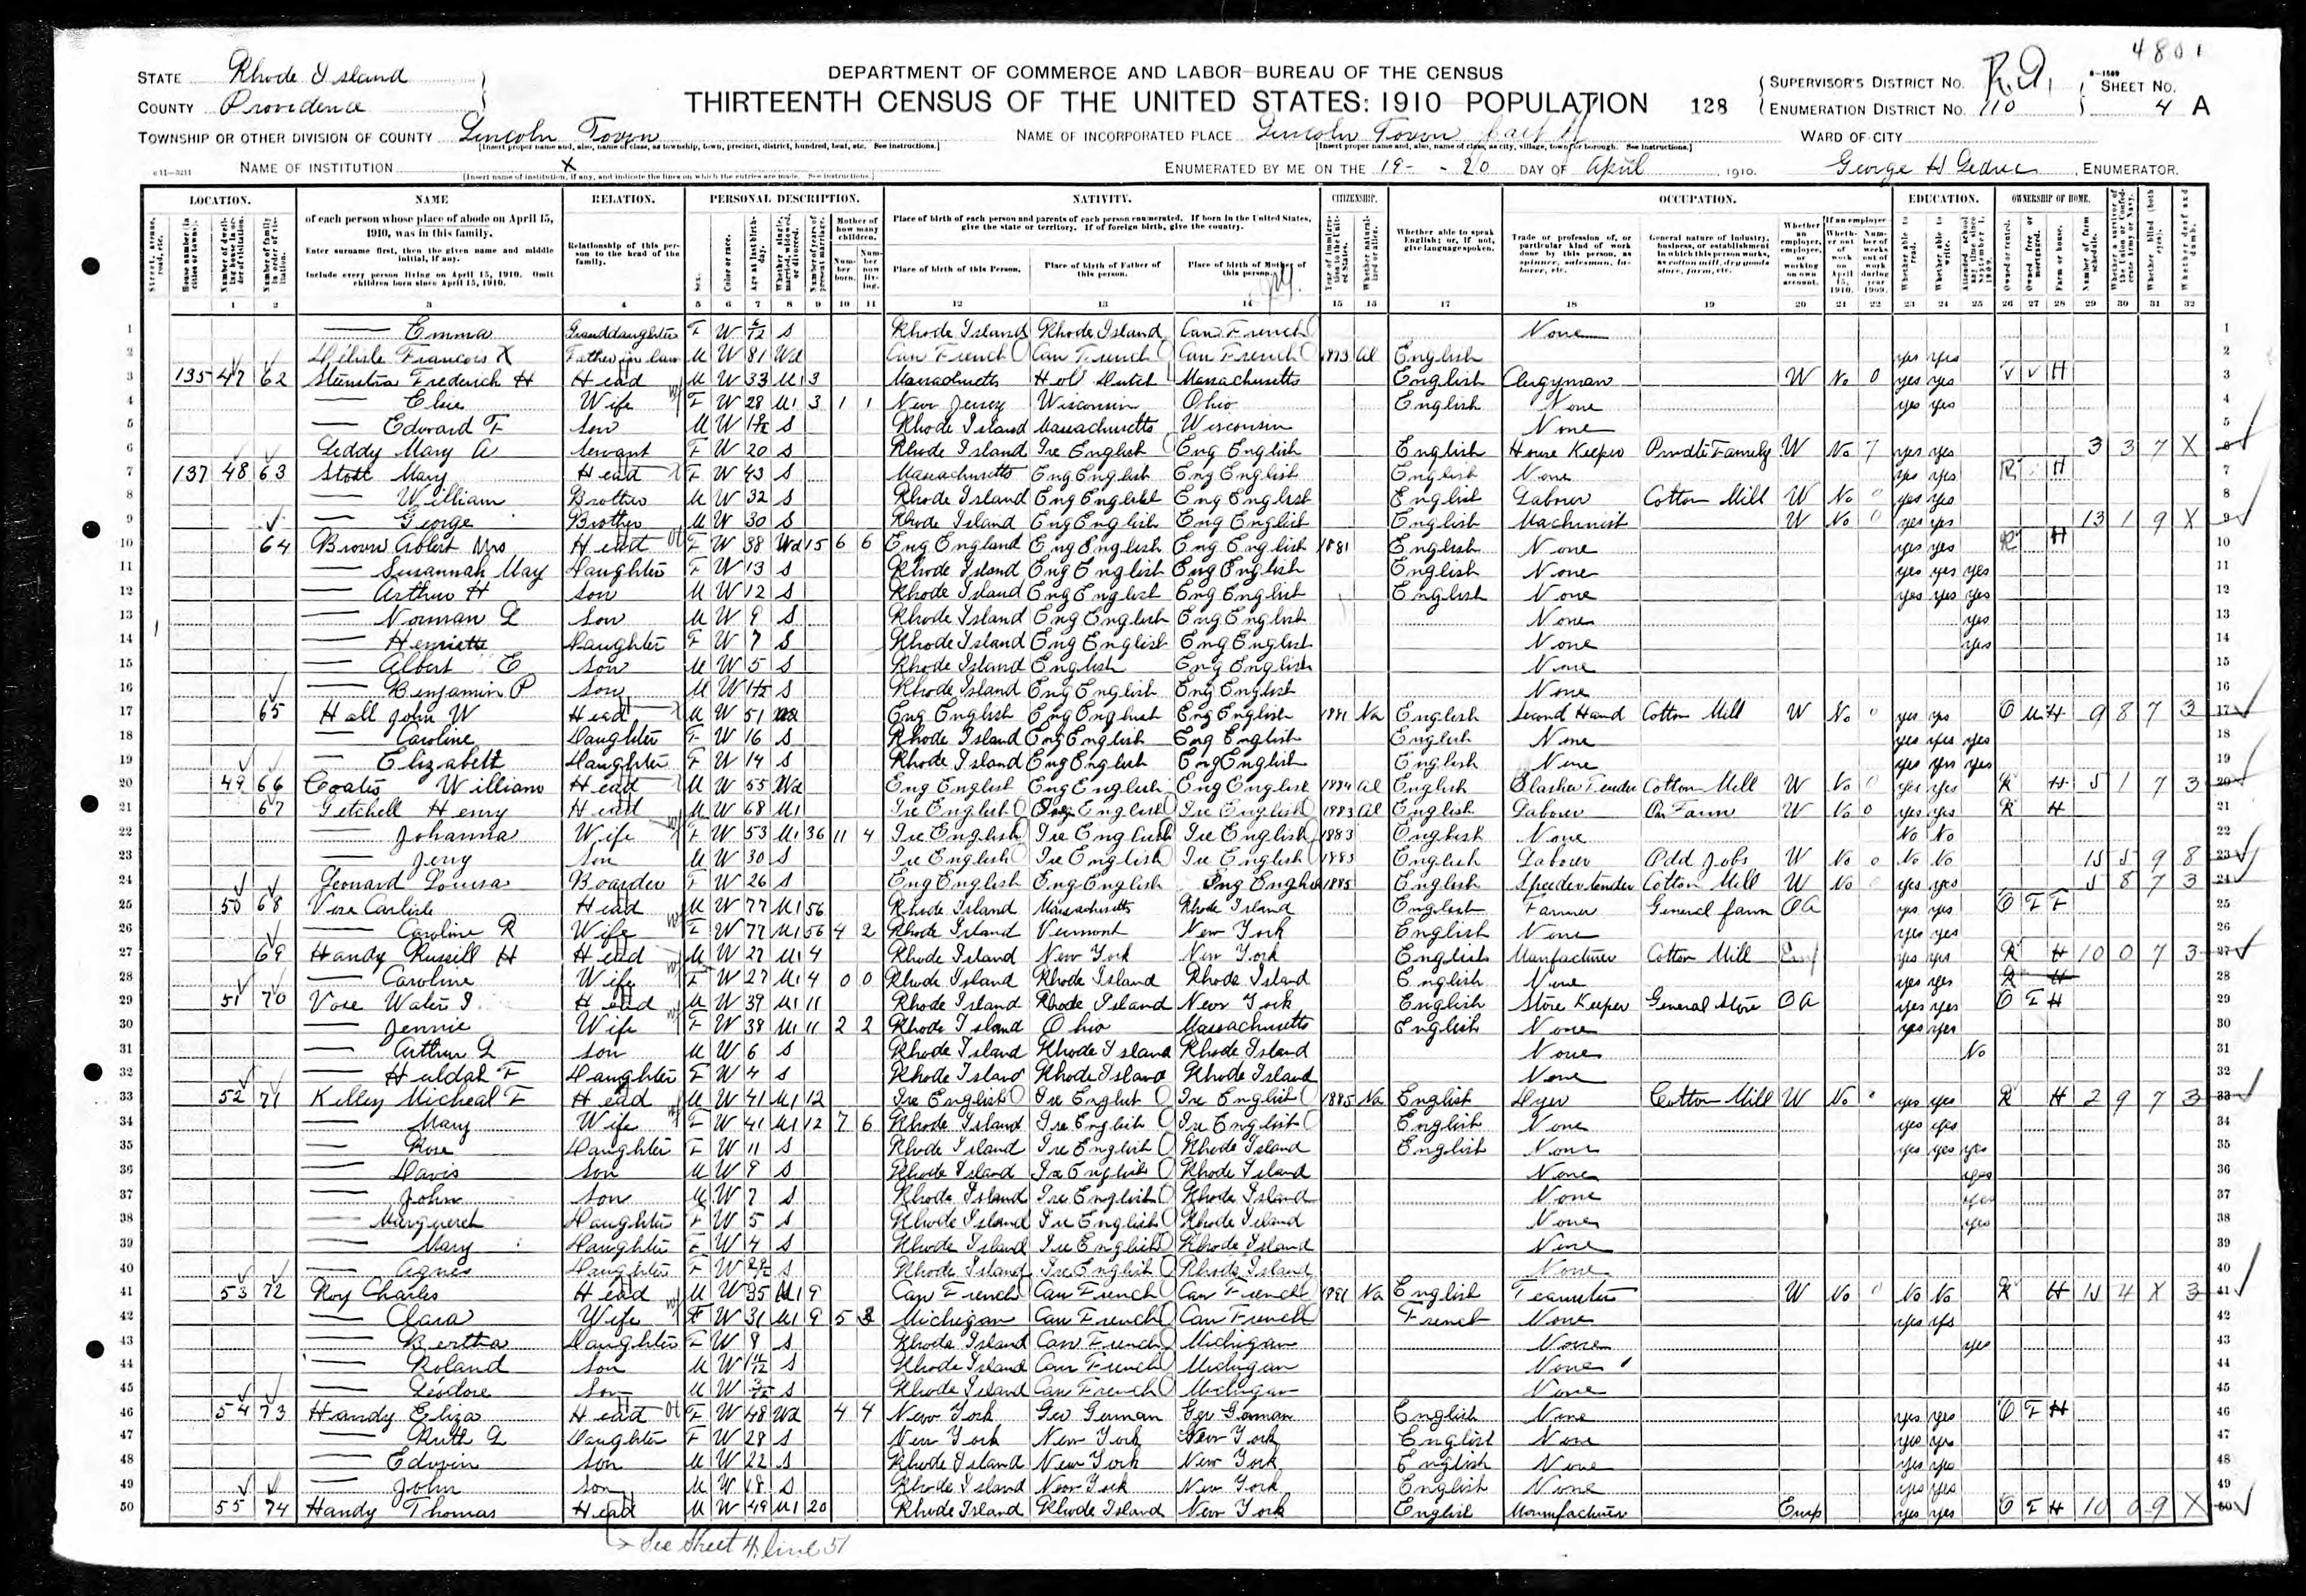 4801
STATE Rhode Island
COUNTY Providence
DEPARTMENT OF COMMERCE AND LABOR—BUREAU OF THE CENSUS
THIRTEENTH CENSUS OF THE UNITED STATES: 1910 POPULATION 128
SUPERVISOR'S DISTRICT NO. R.I.
ENUMERATION DISTRICT NO. 110
SHEET NO. 4 A
TOWNSHIP OR OTHER DIVISION OF COUNTY Lincoln Town
NAME OF INCORPORATED PLACE Lincoln Town part of
WARD OF CITY
NAME OF INSTITUTION X
ENUMERATED BY ME ON THE 19 - 20 DAY OF April, 1910.
George H, ENUMERATOR.
LOCATION. NAME RELATION. PERSONAL DESCRIPTION. NATIVITY. CITIZENSHIP. OCCUPATION. EDUCATION. OWNERSHIP OF HOME.
of each person whose place of abode on April 15, 1910, was in this family.
Enter surname first, then the given name and middle initial, if any.
Include every person living on April 15, 1910. Omit children born since April 15, 1910.
Relationship of this person to the head of the family.
Place of birth of each person and parents of each person enumerated. If born in the United States, give the state or territory. If of foreign birth, give the country.
Place of birth of this Person. Place of birth of Father of this person. Place of birth of Mother of this person.
Whether able to speak English; or, if not, give language spoken.
1 2 3 4 5 6 7 8 9 10 11 12 13 14 15 16 17 18 19 20 21 22 23 24 25 26 27 28 29 30 31 32
1 — Emma Granddaughter F W 6/12 S Rhode Island Rhode Island Can French None 1
2 Delisle Francois X Father in law M W 81 Wd Can French Can French Can French 1893 Al English yes yes 2
3 135 47 62 Frederick H Head M W 33 M1 3 Massachusetts Hol Dutch Massachusetts English Clergyman W No 0 yes yes H 3
4 — Elsie Wife F W 28 M1 3 1 1 New Jersey Wisconsin Ohio English None yes yes 4
5 — Edward F Son M W S Rhode Island Massachusetts Wisconsin None 5
6 Leddy Mary A Servant F W 20 S Rhode Island Ire English Eng English English House Keeper Private Family W No 7 yes yes 3 3 7 X 6
7 137 48 63 Stott Mary Head F W 43 S Massachusetts Eng English Eng English English None yes yes R H 7
8 — William Brother M W 32 S Rhode Island Eng English Eng English English Laborer Cotton Mill W No 0 yes yes 8
9 — George Brother M W 30 S Rhode Island Eng English Eng English English Machinist W No 0 yes yes 13 1 9 X 9
10 64 Brown Albert Mrs Head F W 38 Wd 15 6 6 Eng England Eng English Eng English 1881 English None yes yes R H 10
11 — Susannah May Daughter F W 13 S Rhode Island Eng English Eng English English None yes yes yes 11
12 — Arthur H Son M W 12 S Rhode Island Eng English Eng English English None yes yes yes 12
13 — Norman L Son M W 9 S Rhode Island Eng English Eng English None yes 13
14 — Henrietta Daughter F W 7 S Rhode Island Eng English Eng English None yes 14
15 — Albert E Son M W 5 S Rhode Island English Eng English None 15
16 — Benjamin P Son M W S Rhode Island Eng English Eng English None 16
17 65 Hall John W Head M W 51 Wd Eng English Eng English Eng English 1881 Na English Second Hand Cotton Mill W No 0 yes yes O M H 9 8 7 3 17
18 — Caroline Daughter F W 16 S Rhode Island Eng English Eng English English None yes yes yes 18
19 — Elizabeth Daughter F W 14 S Rhode Island Eng English Eng English English None yes yes yes 19
20 49 66 Coates William Head M W 55 Wd Eng English Eng English Eng English 1884 Al English Slasher Tender Cotton Mill W No 0 yes yes R H 5 1 7 3 20
21 67 Getchell Henry Head M W 68 M1 Ire English Ire English Ire English 1883 Al English Laborer On Farm W No 0 yes yes R H 21
22 — Johanna Wife F W 53 M1 36 11 4 Ire English Ire English Ire English 1883 English None No No 22
23 — Jerry Son M W 30 S Ire English Ire English Ire English 1883 English Laborer Odd Jobs W No 0 No No 15 5 9 8 23
24 Leonard Louisa Boarder F W 26 S Eng English Eng English Eng English 1885 English Speeder tender Cotton Mill W No 0 yes yes 5 8 7 3 24
25 50 68 Vose Carlisle Head M W 77 M1 56 Rhode Island Massachusetts Rhode Island English Farmer General farm OA yes yes O F F 25
26 — Caroline R Wife F W 77 M1 56 4 2 Rhode Island Vermont New York English None yes yes 26
27 69 Handy Russill H Head M W 27 M1 4 Rhode Island New York New York English Manfacturer Cotton Mill Emp yes yes R H 10 0 7 3 27
28 — Caroline Wife F W 27 M1 4 0 0 Rhode Island Rhode Island Rhode Island English None yes yes R H 28
29 51 70 Vose Walter I Head M W 39 M1 11 Rhode Island Rhode Island New York English Store Keeper General Store OA yes yes O F H 29
30 — Jennie Wife F W 38 M1 11 2 2 Rhode Island Ohio Massachusetts English None yes yes 30
31 — Arthur L Son M W 6 S Rhode Island Rhode Island Rhode Island None No 31
32 — Huldah F Daughter F W 4 S Rhode Island Rhode Island Rhode Island None 32
33 52 71 Kelley Micheal F Head M W 41 M1 12 Ire English Ire English Ire English 1885 Na English Dyer Cotton Mill W No 0 yes yes R H 2 9 7 3 33
34 — Mary Wife F W 41 M1 12 7 6 Rhode Island Ire English Ire English English None yes yes 34
35 — Rose Daughter F W 11 S Rhode Island Ire English Rhode Island English None yes yes yes 35
36 — Davis Son M W 9 S Rhode Island Ire English Rhode Island None yes 36
37 — John Son M W 7 S Rhode Island Ire English Rhode Island None yes 37
38 — Margueret Daughter F W 5 S Rhode Island Ire English Rhode Island None yes 38
39 — Mary Daughter F W 4 S Rhode Island Ire English Rhode Island None 39
40 — Agnes Daughter F W S Rhode Island Ire English Rhode Island None 40
41 53 72 Roy Charles Head M W 35 M1 9 Can French Can French Can French 1881 Na English Teamster W No 0 No No R H 15 4 X 3 41
42 — Clara Wife F W 31 M1 9 5 3 Michigan Can French Can French French None yes yes 42
43 — Bertha Daughter F W 8 S Rhode Island Can French Michigan None yes 43
44 — Roland Son M W 1 S Rhode Island Can French Michigan None 44
45 — Leodore Son M W 3/12 S Rhode Island Can French Michigan None 45
46 54 73 Handy Eliza Head F W 48 Wd 4 4 New York Ger German Ger German English None yes yes O F H 46
47 — Ruth L Daughter F W 28 S New York New York New York English None yes yes 47
48 — Edwin Son M W 22 S Rhode Island New York New York English None yes yes 48
49 — John Son M W 18 S Rhode Island New York New York English None yes yes 49
50 55 74 Handy Thomas Head M W 49 M1 20 Rhode Island Rhode Island New York English Manufacturer Emp yes yes O F H 10 0 9 X 50
See Sheet 4, line 51